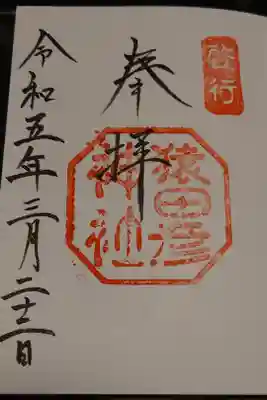 啓行
奉拝
猿田彦
神社
令和五年三月二十二日